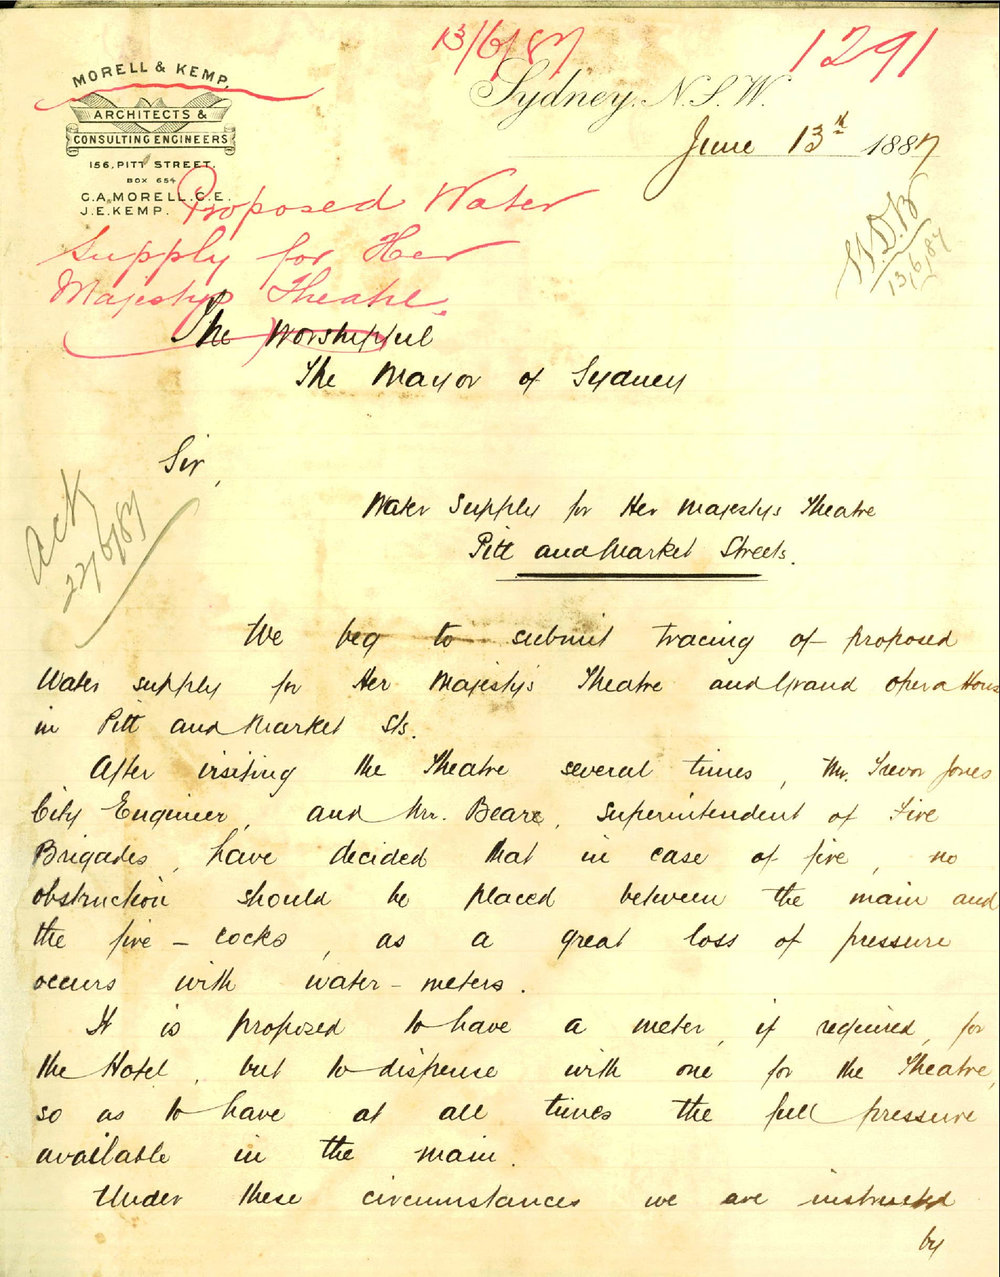 13/6/87
1291
MORELL & KEMP,
ARCHITECTS &
CONSULTING ENGINEERS
156, PITT STREET.
BOX 654
C.A. MORELL. C.E.
J.E. KEMP.
Sydney, N.S.W.
June 13th 1887
W.D.B
13/6/87
Proposed Water
Supply for Her
Majestys Theatre.
The Worshipful
The Mayor of Sydney
Sir,
Ack
22/6/87
Water Supply for Her Majestys Theatre
Pitt and Market Streets.
We beg to submit tracing of proposed
Water supply for Her Majesty's Theatre and Grand Opera Hous
in Pitt and Market Sts.
After visiting the Theatre several times, Mr. Trevor Jones
City Engineer, and Mr. Beare, Superintendent of Fire
Brigades, have decided that in case of fire, no
obstruction should be placed between the main and
the fire-cocks, as a great loss of pressure
occurs with water-meters.
It is proposed to have a meter, if required, for
the Hotel, but to dispense with one for the Theatre,
so as to have at all times the full pressure
available in the main.
Under these circumstances we are instructed
by